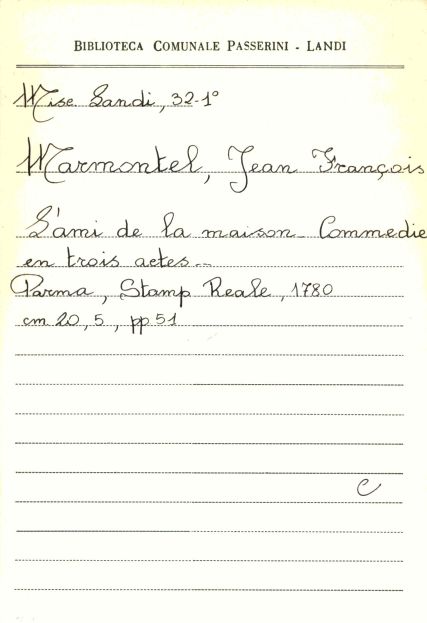 BIBLIOTECA COMUNALE PASSERINI - LANDI
Misc. Landi, 32-1°
Marmontel, Jean François
L'ami de la maison - Commedie
en trois actes...
Parma, Stamp Reale, 1780
cm 20,5, pp 51
C